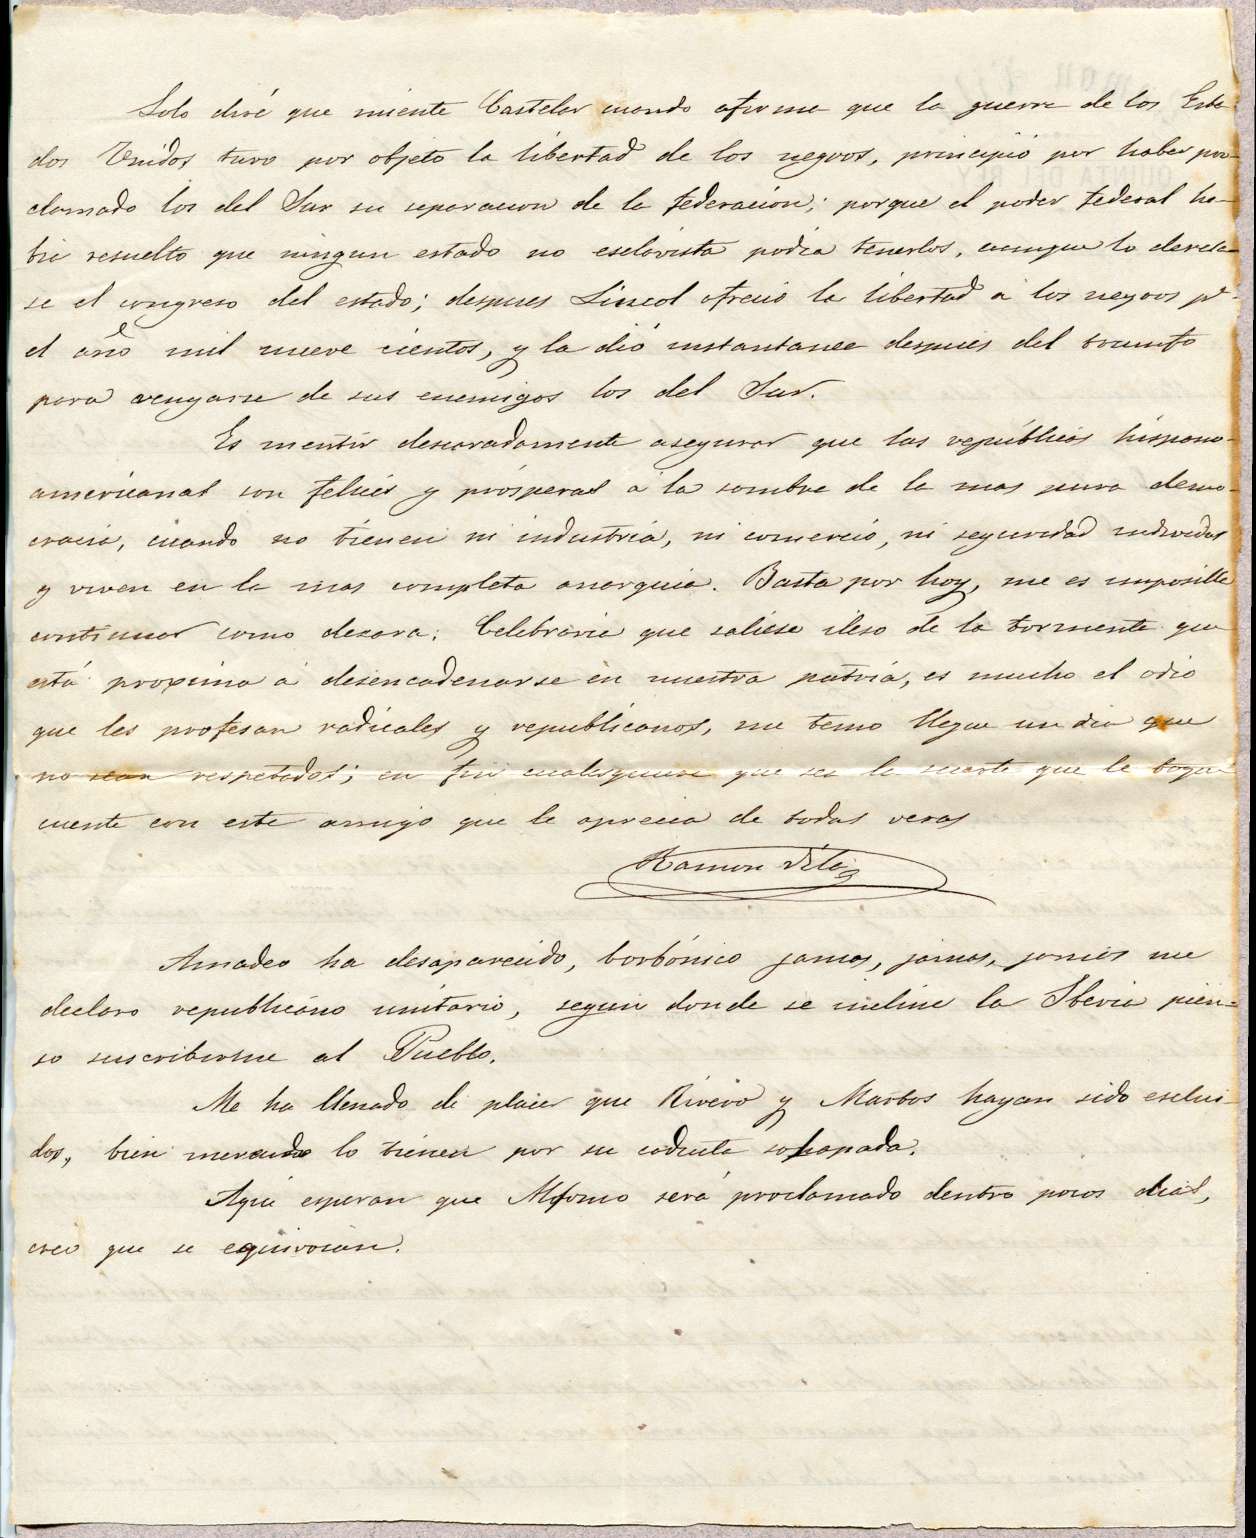 Solo diré que miente Castelar cuando afirma que la guerra de los Esta-
dos Unidos tuvo por objeto la libertad de los negros, principió por haber pro-
clamado los del Sur su separacion de la federación; porque el poder federal ha-
bia resuelto que ningun estado no esclavista podia tenerlos, aunque lo decreta-
se el congreso del estado; despues Lincol ofreció la libertad a los negros pª
el año mil nueve cientos, y la dió instantanea despues del triunfo
para vengarse de sus enemigos los del Sur.
Es mentir descaradamente asegurar que las repúblicas hispano-
americanas son felices y prósperas a la sombra de la mas pura demo-
cracia, cuando no tienen ni industria, ni comercio, ni seguridad individual
y viven en la mas completa anarquia. Basta por hoy, me es imposible
continuar como deseara. Celebraria que saliese ileso de la tormenta que
está proxima á desencadenarse en nuestra patria, es mucho el odio
que les profesan radicales y republicanos, me temo llegue un dia que
no sean respetados; en fin cualesquiera que sea la suerte que le toque
cuente con este amigo que le aprecia de todas veras
Ramon Vila
Amadeo ha desaparecido, borbónico jamas, jamas, jamas me
declaro republicano unitario, segun donde se incline la Iberia pien-
so suscribirme al Pueblo.
Me ha llenado de placer que Rivero y Martos hayan sido esclui-
dos, bien merecido lo tienen por su conducta solapada.
Aqui esperan que Alfonso será proclamado dentro pocos dias,
creo que se equivocan.